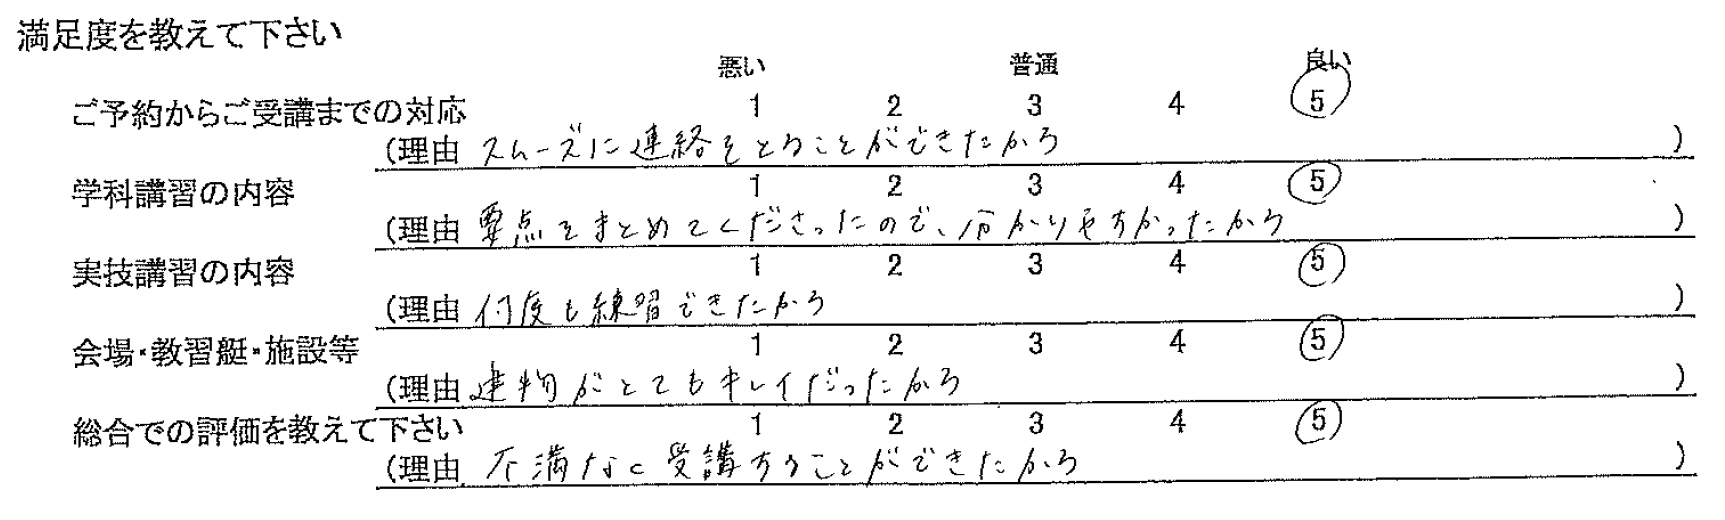 満足度を教えて下さい
悪い 普通 良い
ご予約からご受講までの対応 1 2 3 4 5
(理由 スムーズに連絡をとることができたから )
学科講習の内容 1 2 3 4 5
(理由 要点をまとめてくださったので、分かりやすかったから )
実技講習の内容 1 2 3 4 5
(理由 何度も練習できたから )
会場・教習艇・施設等 1 2 3 4 5
(理由 建物がとてもキレイだったから )
総合での評価を教えて下さい 1 2 3 4 5
(理由 不満なく受講することができたから )